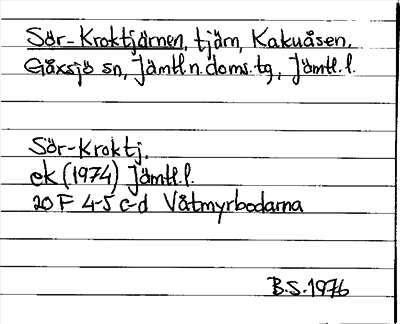 Sör-Kroktjärnen, tjärn, Kakuåsen,
Gåxsjö sn, Jämtl.n.doms.tg, Jämtl.l.
Sör-Kroktj.
ek (1974) Jämtl.l.
20 F 4-5 c-d Våtmyrbodarna
B.S. 1976